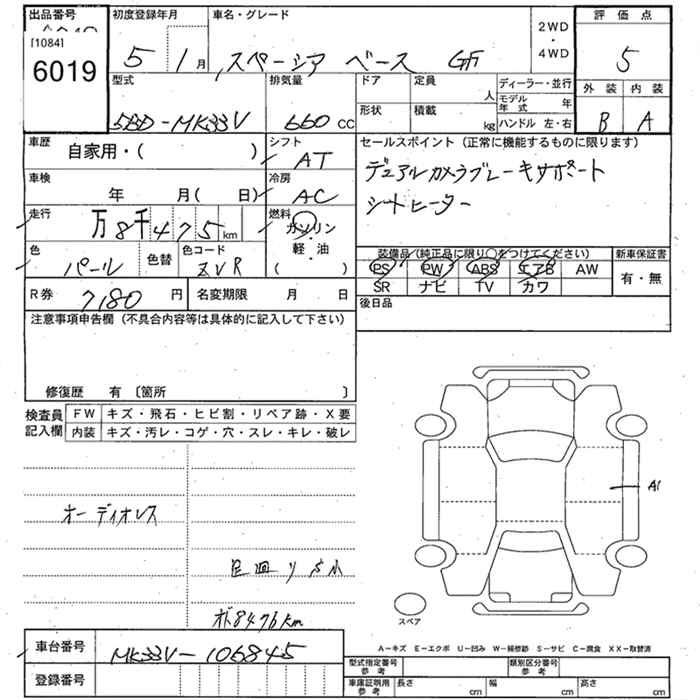 出品番号 初度登録年月 車名・グレード 2WD・4WD 評価点
[1084]
6019
5 1月 スペーシア ベース GF 5
外装 内装
B A
型式 排気量 ドア 定員 人 ディーラー・並行
モデル年式 年
形状 積載 kg ハンドル 左・右
5BD-MK33V 660 CC
車歴 シフト セールスポイント(正常に機能するものに限ります)
自家用・( ) AT デュアルカメラブレーキサポート
車検 冷房 シートヒーター
年 月( 日) AC
走行 燃料
万8千475km ガソリン
軽・油
( )
色 色替 色コード
パール ZVR
装備品(純正品に限り○をつけてください) 新車保証書
PS PW ABS エアB AW 有・無
SR ナビ TV カワ
R券 7,180 円 名変期限 月 日 後日品
注意事項申告欄(不具合内容等は具体的に記入して下さい)
修復歴 有 〔箇所 〕
検査員記入欄 FW キズ・飛石・ヒビ割・リペア跡・X要
内装 キズ・汚レ・コゲ・穴・スレ・キレ・破レ
A1
オーディオレス
足廻りS小
オド8476km
スペア
A-キズ E-エクボ U-凹み W-補修跡 S-サビ C-腐食 XX-取替済
車台番号 MK33V-106845
登録番号
型式指定番号 参考 類別区分番号 参考
車庫証明用 参考 長さ cm 幅 cm 高さ cm